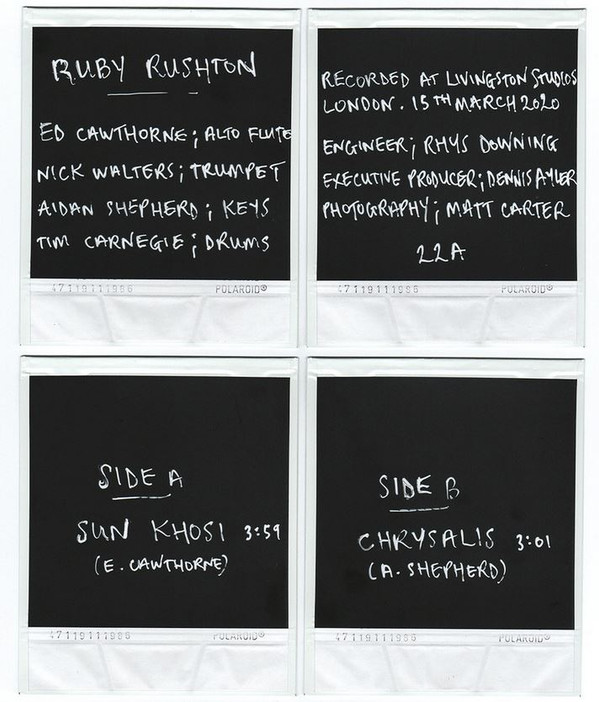 RUBY RUSHTON
ED CAWTHORNE; ALTO FLUTE
NICK WALTERS; TRUMPET
AIDAN SHEPHERD; KEYS
TIM CARNEGIE; DRUMS
47119111986 POLAROID®
RECORDED AT LIVINGSTON STUDIOS
LONDON. 15TH MARCH 2020
ENGINEER; RHYS DOWNING
EXECUTIVE PRODUCER; DENNIS AYLER
PHOTOGRAPHY; MATT CARTER
22A
47119111986 POLAROID®
SIDE A
SUN KHOSI 3:59
(E. CAWTHORNE)
47119111986 POLAROID®
SIDE B
CHRYSALIS 3:01
(A. SHEPHERD)
47119111986 POLAROID®